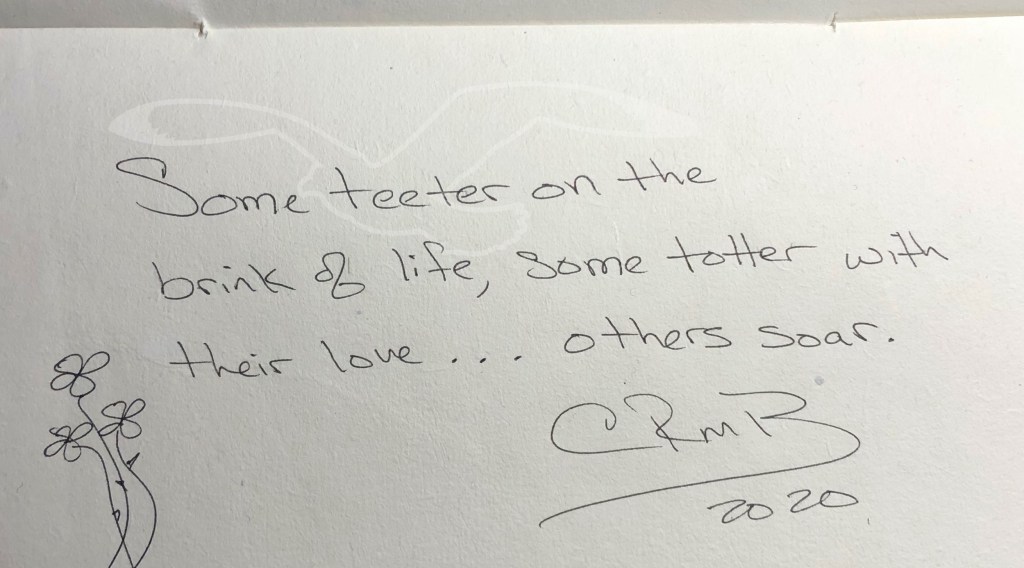 Some teeter on the
brink of life, some totter with
their love... others soar.
CRmB
2020